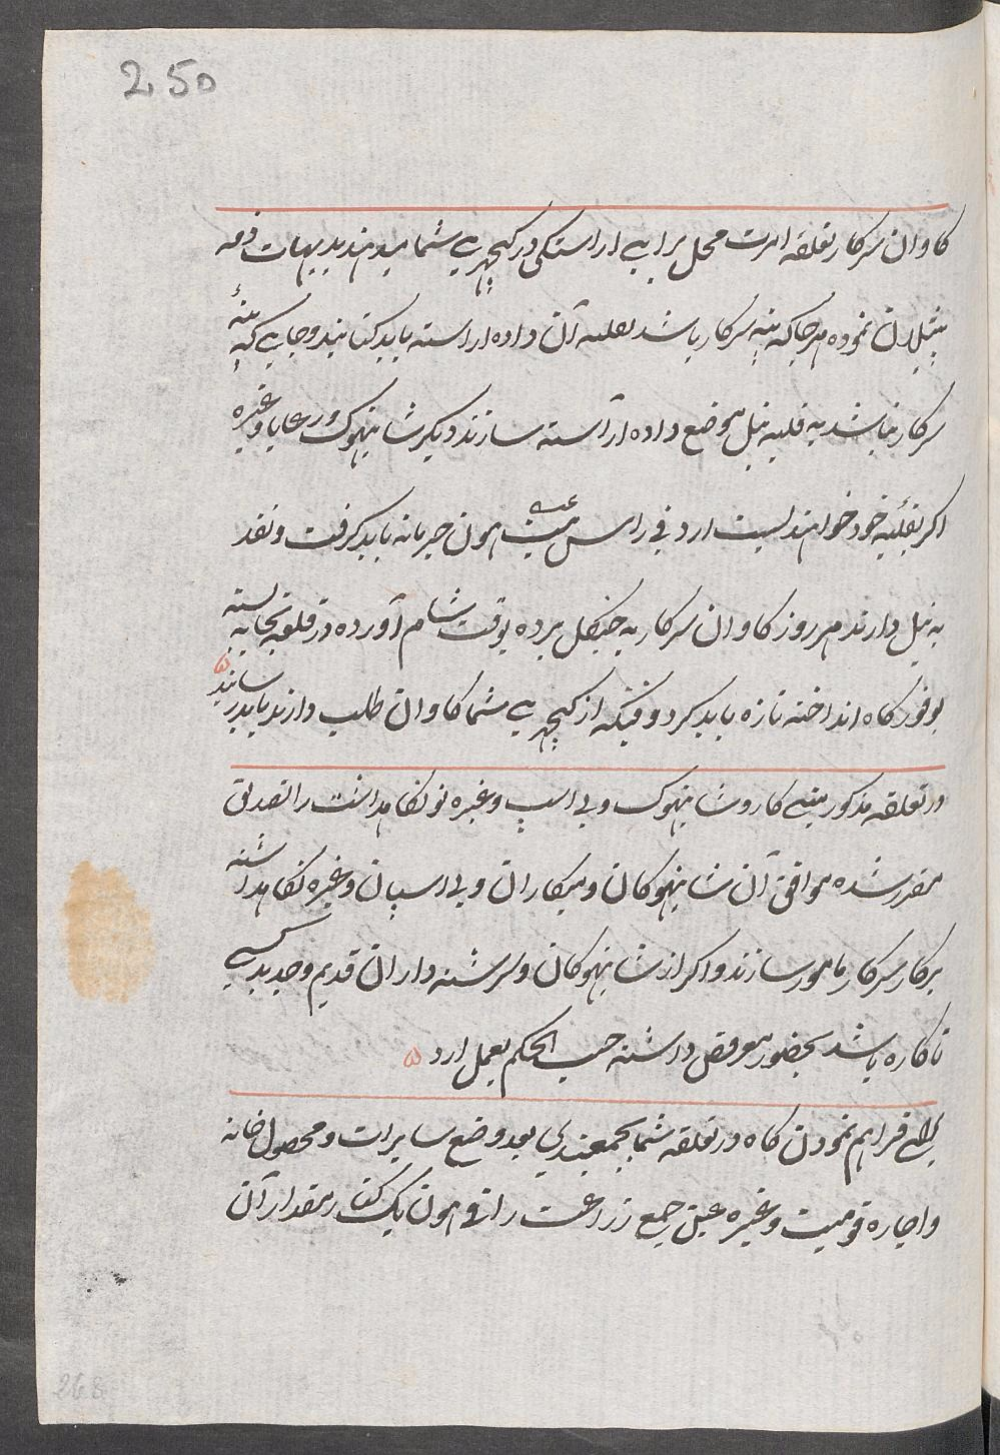 250
کاوان سرکار تعلقه امرت محل برای اراستکی در کچهری شما میدهند بدیهات ذمه
پتیلان نموده هر جا که بنیه سرکار باشد بقلبه آن داده اراسته باید کنانید و جاییکه بنیهٔ
سرکار نباشد به قلبه پتیل موضع داده آراسته سازند دیکر شانبهوک و رعایا وغیره
اکر بقلبه خود خواهند بست ارد فی راس هون جرمانه باید کرفت و نقد
به پتیل دارند هر روز کاوان سرکار به جنکل برده بوقت شام آورده در قلعه بسته
بوفور کاه انداخته تازه باید کرد و قتیکه از کچهری شما کاوان طلب دارند باید رسانید
در تعلقه مذکور میبی کار و شانبهوک و بی اسپ وغیره نو نکاهداشت را تصدیق
مقرر شده موافق آن شانبهوکان و میبکاران و بی اسپان وغیره نکاهداشته
بر کار سرکار مامور سازند و اکر از شانبهوکان و سررشته داران قدیم و جدید کسی
ناکاره باشد بحضور معروض داشته حسب الحکم بعمل ارد
برای فراهم نمودن کاه در تعلقه شما بجمعبندی بعد وضع سایرات و محصول خانه
و اجاره قومیت وغیره عین جمع زراعت را فی هون یک کنار مقدار آن
268